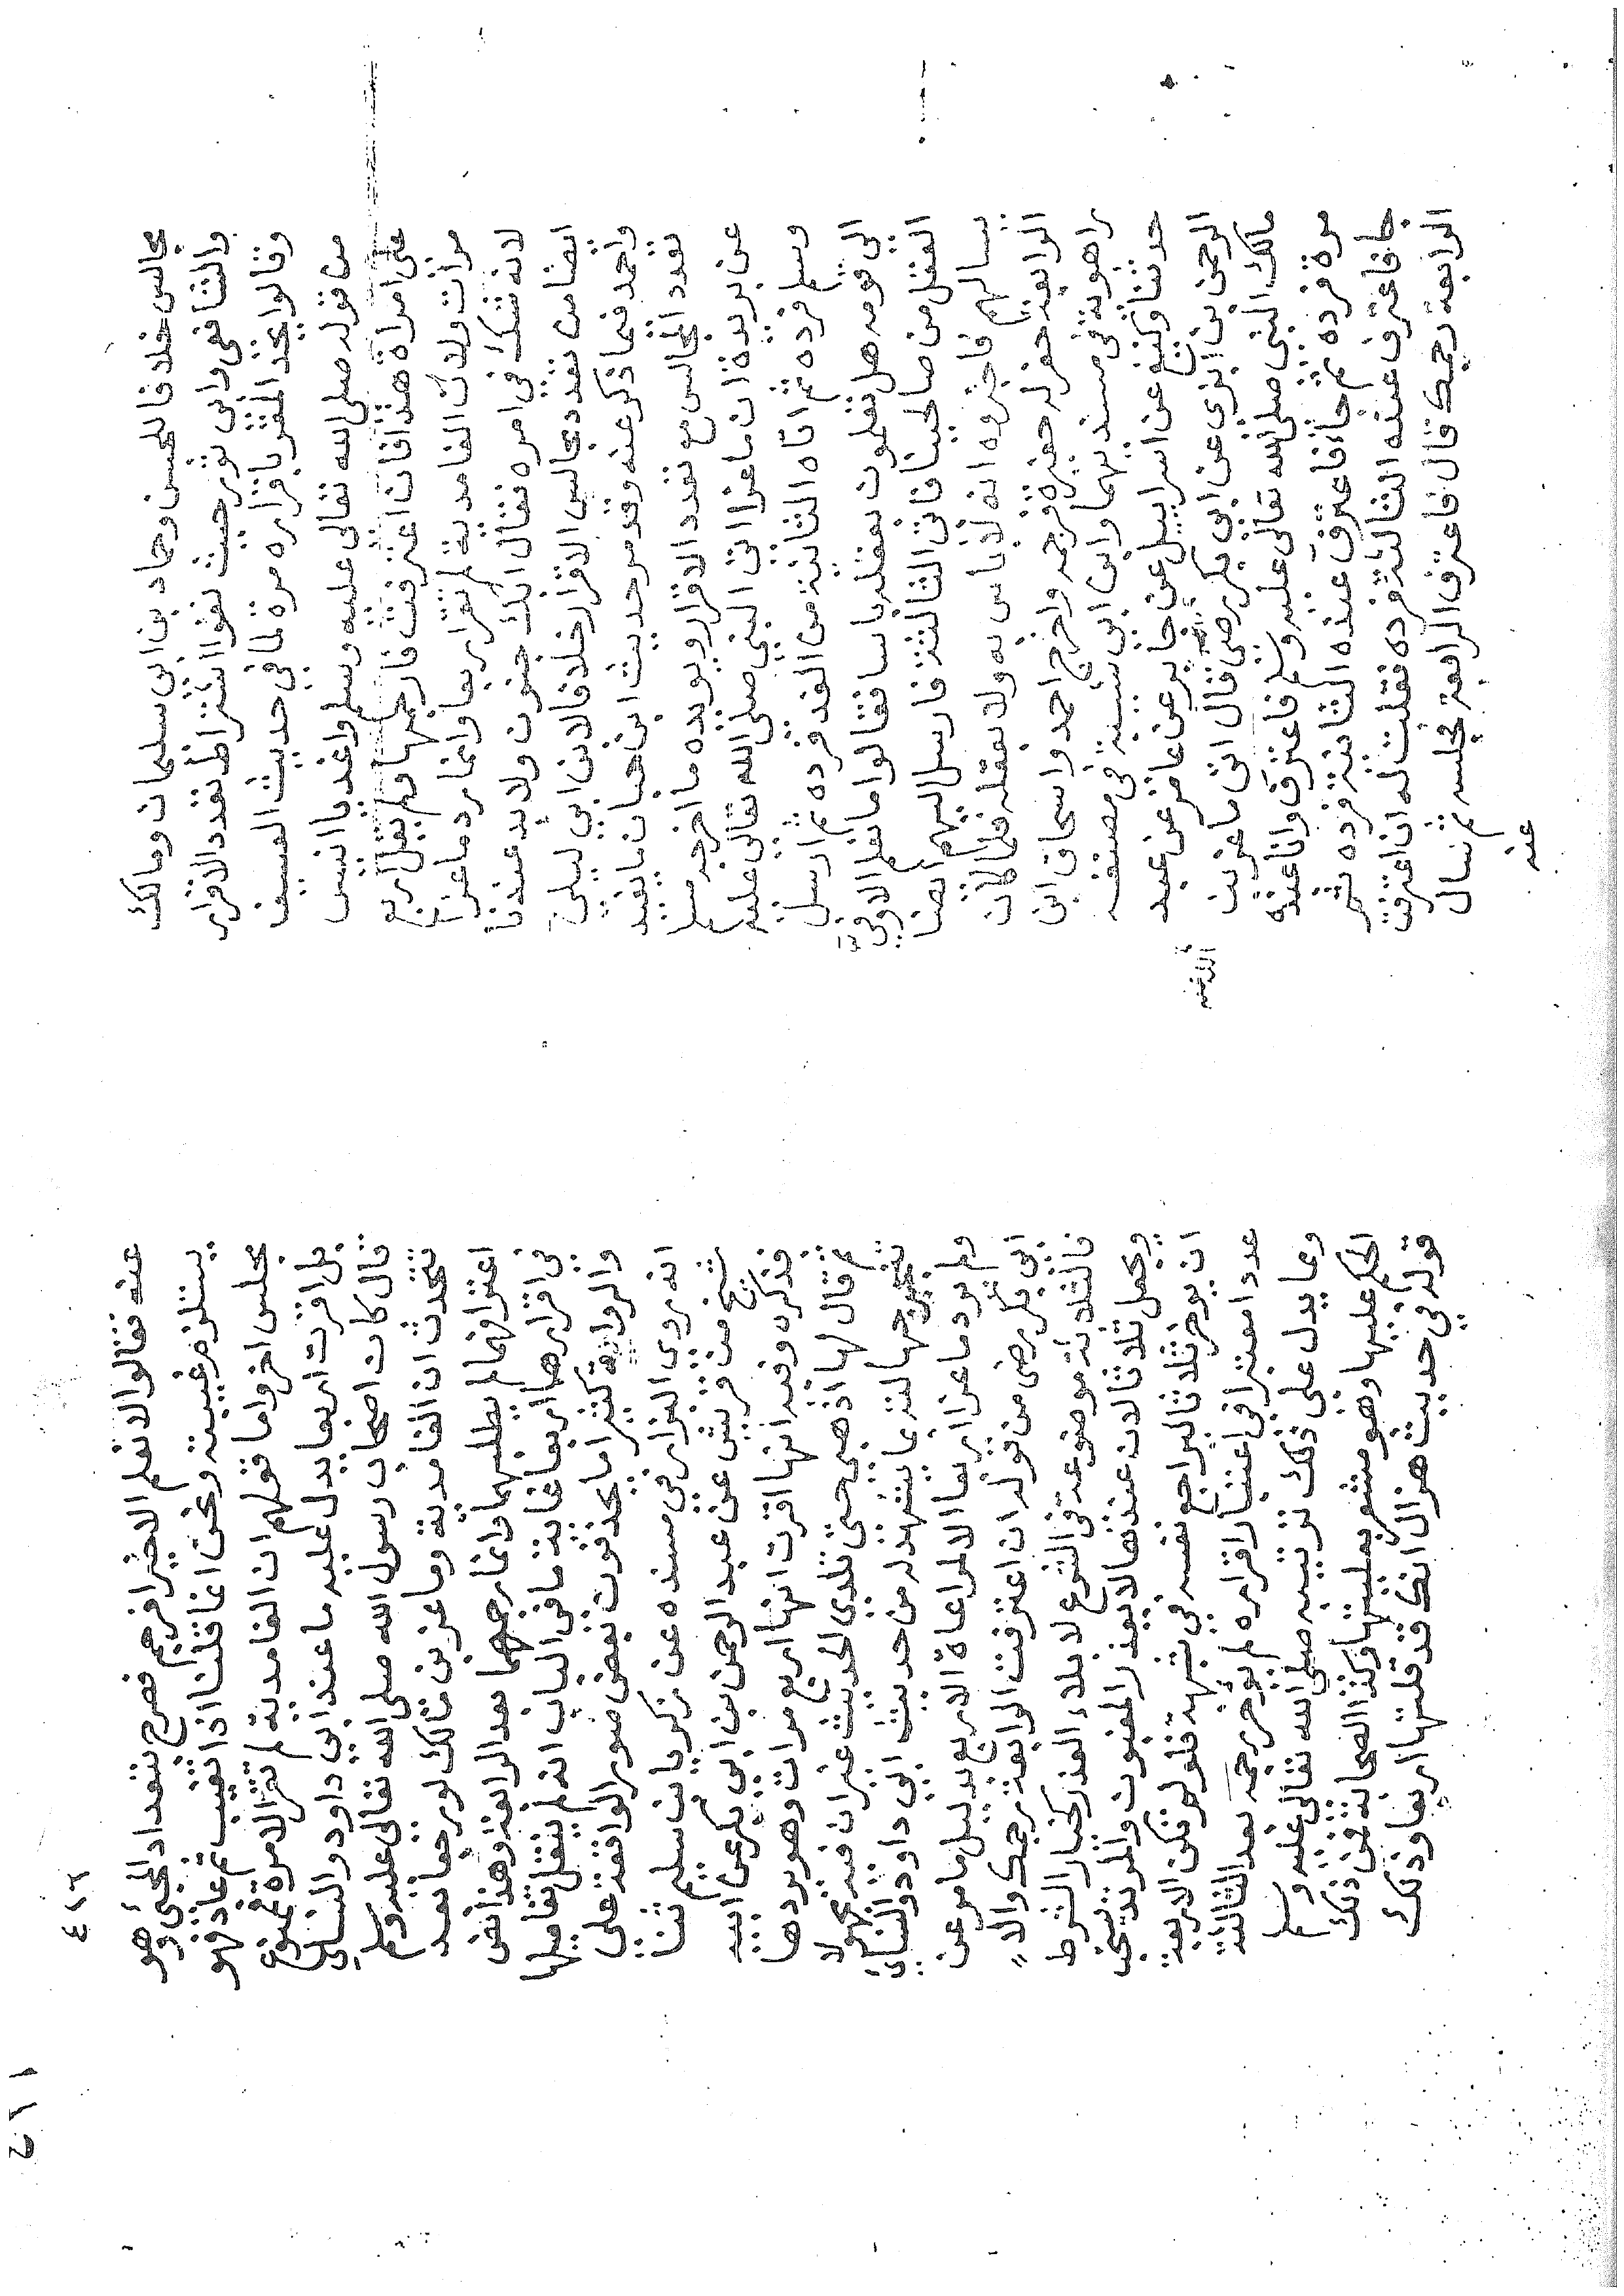 مجالس خلافا للحسن وحماد بن ابى سليمان ومالك
والشافعى وابى ثور حيث نفوا اشتراط تعدد الاقرار
وقالوا يحد المقر باقراره مرة لما في حديث العسيف
من قوله صلى الله تعالى عليه وسلم واغد يا انيس
على امراة هذا فان اعترفت فارجمها ولم يقل اربع
مرات ولان الغامدية لم تقر اربعا وانما رد ماعزا
لانه شك في امره فقال ابك جنون ولابد عندنا
ايضا من تعدد مجالس الاقرار خلافا لابن ابي ليلى
واحمد فيما ذكر عنه وقد مر حديث ابن حبان ما يفيد
تعدد المجالس مع تعدد الاقرار ويويده ما اخرجه مسلم
عن بريدة ان ماعزا اتى النبي صلى الله تعالى عليه
وسلم فرده ثم اتاه الثانية من الغد فرده ثم ارسل
الى قومه هل تعلمون بعقله باسا فقالوا ما نعلم الا وفيّ
العقل من صالحينا فاتى الثالثة فارسل اليهم ايضا
يسالهم فاخبروه انه لا باس به ولا بعقله فلما كان
الرابعة حفر له حفيرة فرجمه واخرج احمد واسحاق ابن
راهويه في مسنديهما وابن ابي شيبة في مصنفه
حدثنا وكيع عن اسراييل عن جابر عن عامر عن عبد
الرحمن بن ابزى عن ابى بكر رضى الله عنه قال اتى ماعز بن
مالك النبى صلى الله تعالى عليه وسلم فاعترف وانا عنده
مرة فرده ثم جاء فاعترف عنده الثانية فرده ثم
جا فاعترف عنده الثالثة فرده فقلت له ان اعترفت
الرابعة رجمك قال فاعترف الرابعة فحبسه ثم سال
عنه
٤١٦
٤١١
عنه فقالوا لا نعلم الا خيرا فرجم فصرح بتعداد المجى وهو
يستلزم غيبته ونحن انما قلنا اذا تغيب ثم عاد فهو
مجلس اخر واما قولهم ان الغامدية لم تقر الا مرة فممنوع
بل اقرت اربعا يدل عليه ما عند ابي داود والنساى
قال كان اصحاب رسول الله صلى الله تعالى عليه وسلم
تتحدث ان الغامدية وماعز بن مالك لو رجعا بعد
اعترافهما لم يطلبهما وانما رجمهما بعد الرابعة وهذا نص
فى اقرارهما اربعا غاية ما فى الباب انه لم ينقل تفاصيلها
والرواية كثيرا ما يحذفون بعض صور الواقعة على
انه روى البزار في مسنده عن زكريا بن سليم ثنا
شيخ من قريش عن عبد الرحمن بن ابي بكر عن ابيه
فذكره وفيه انها اقرت اربع مرات وهو يردها
ثم قال لها اذهبى حتى تلدى الحديث غير ان فيه مجهولا
تنجبر جهالته بما يشهد له من حديث ابى داود والنساى
ولم يرد ماعزا اربعا الا لمراعاة الاربع بدليل ما مر عن
ابى بكر رضى من قوله ان اعترفت الرابعة رجمك والا
فالثلاثة موضوعة فى الشرع لابلاء العذر كخيار الشرط
ويجعل ثلاثا لان عندها لا يعذر المغبون والمرتد يستحب
ان يوخر ثلاثا ليراجع نفسه في شبهة فلو لم تكن الاربعة
عددا معتبرا فى اعتبار اقراره لم يؤخر رجمه بعد الثالثة
ومما يدل على ذلك ترتيبه صلى الله تعالى عليه وسلم
الحكم عليها وهو مشعر بعليتها وكذا الصحابة فمن ذلك
قوله في حديث هزال انك قد قلتها اربعا وذلك